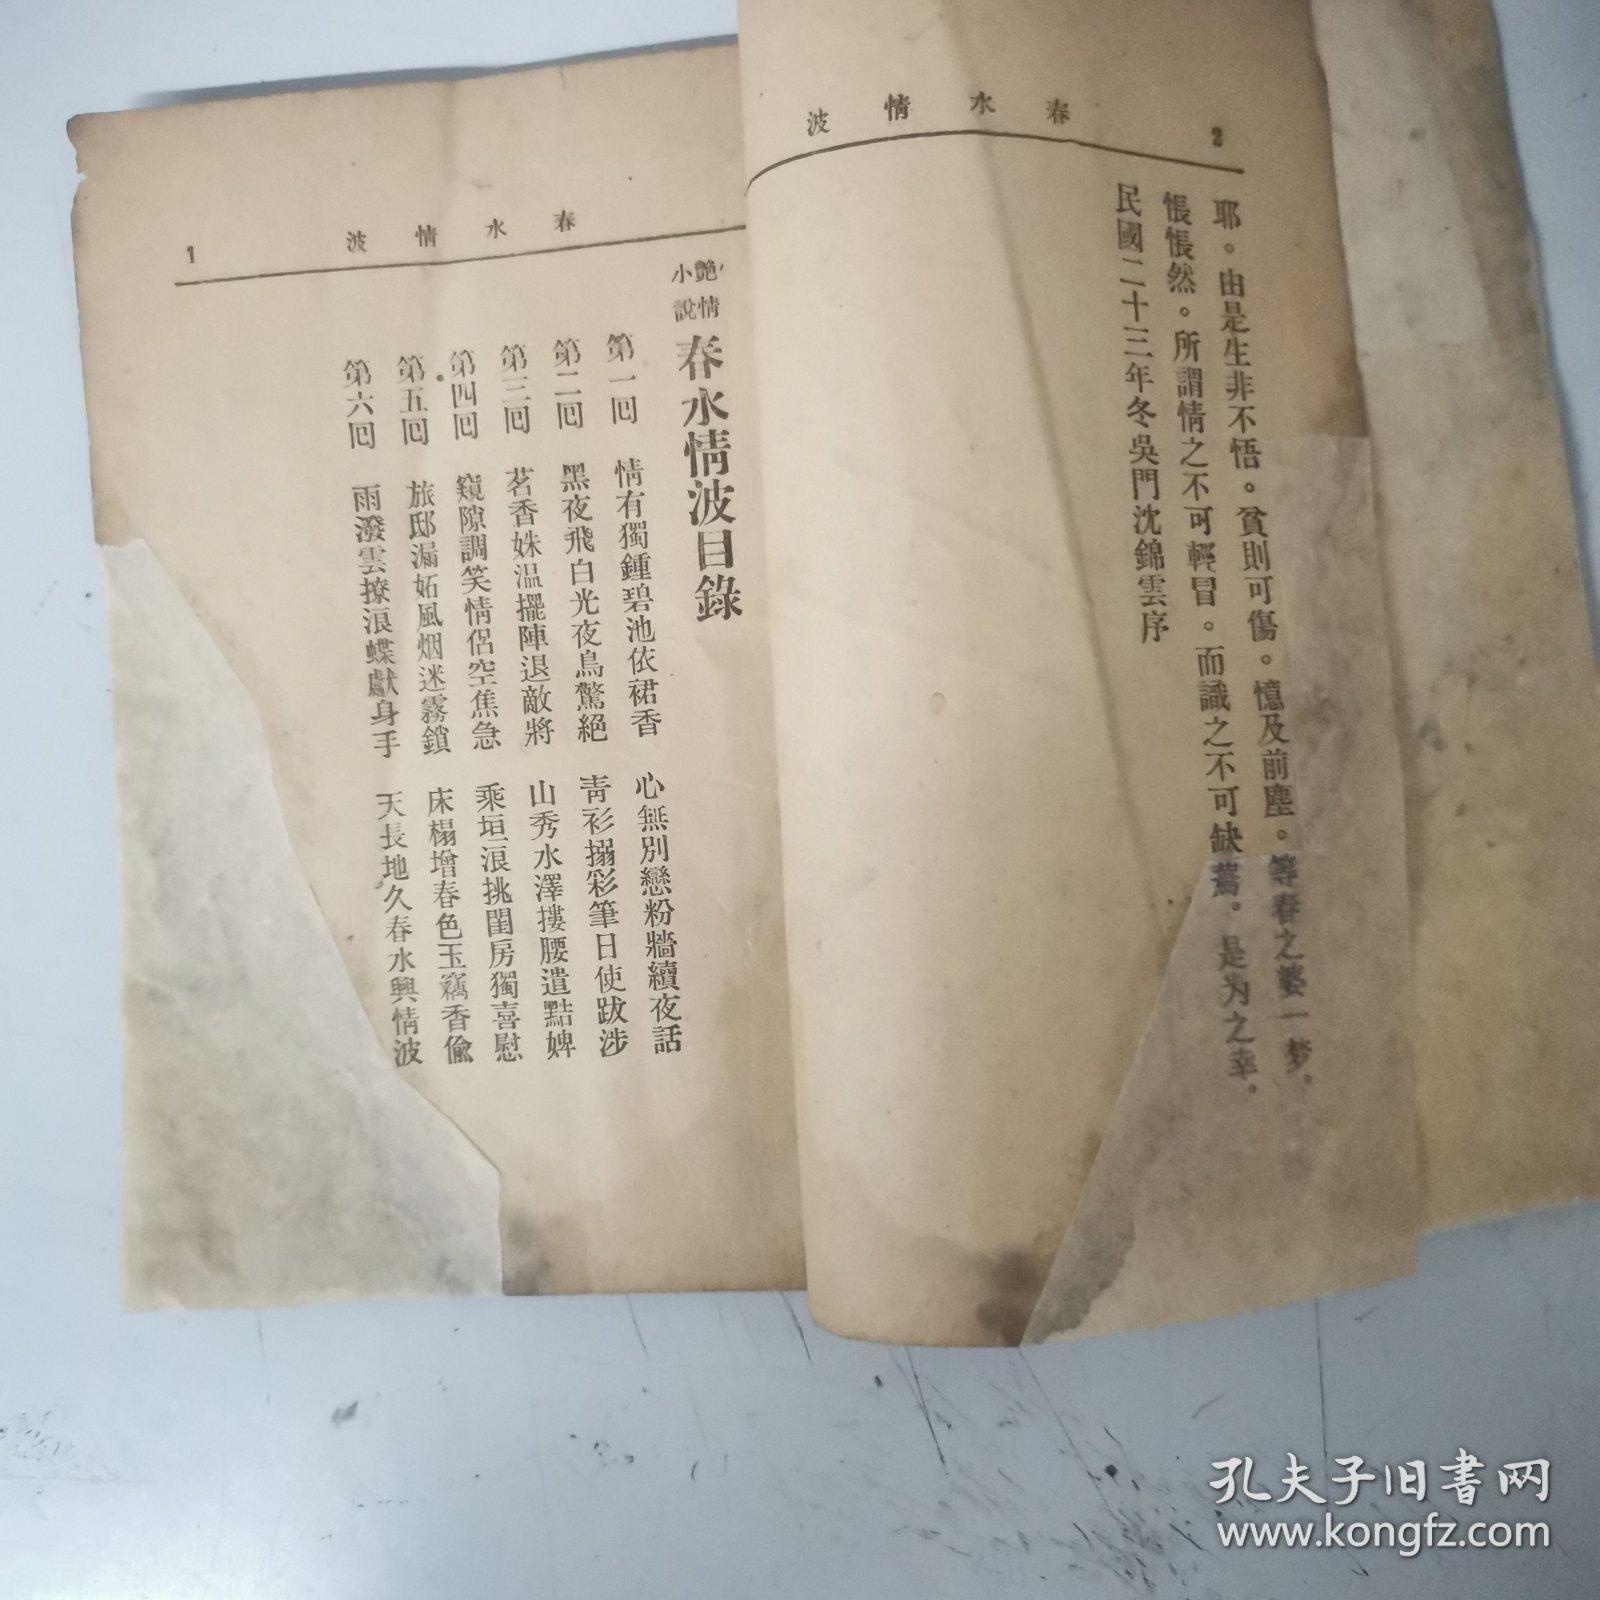 春水情波
2
耶。由是生非不悟。貧則可傷。憶及前塵。等春之婆一梦。
悵悵然。所謂情之不可輕冒。而識之不可缺焉。是为之幸。
民國二十三年冬吳門沈錦雲序
春水情波
1
艷情小說
春水情波目錄
第一回 情有獨鍾碧池依裙香 心無別戀粉牆續夜話
第二回 黑夜飛白光夜鳥驚絕 靑衫搦彩筆日使跋涉
第三回 茗香姝温擺陣退敵將 山秀水澤摟腰遣點婢
第四回 窺隙調笑情侶空焦急 乘垣浪挑閨房獨喜慰
第五回 旅邸漏妬風烟迷霧鎖 床榻增春色玉竊香偸
第六回 雨潑雲撩浪蝶獻身手 天長地久春水興情波
孔夫子旧书网
www.kongfz.com